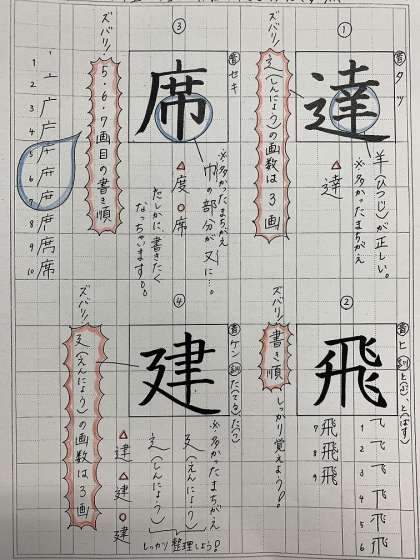 ①
音タツ
達
羊(ひつじ)が正しい。
※多かったまちがえ
△達
ズバリ!
辶(しんにょう)の画数は3画
②
音ヒ 訓と(ぶ)、と(ばす)
飛
ズバリ!
書き順
しっかり覚えよう!
1
2
3
4
5
6
7 飛
8 飛
9 飛
③
音セキ
席
※多かったまちがえ
巾の部分が又に…。
△度 ○席
たしかに、書きたく
なっちゃいます!
ズバリ!
5・6・7画目の書き順
1
2
3
4
5
6
7
8
9
10 席
④
音ケン 訓た(てる)、た(つ)
建
※多かたまちがえ
廴(えんにょう)
辶(しんにょう)
しっかり整理しよう!
△建 △建 ○建
ズバリ!
廴(えんにょう)の画数は3画